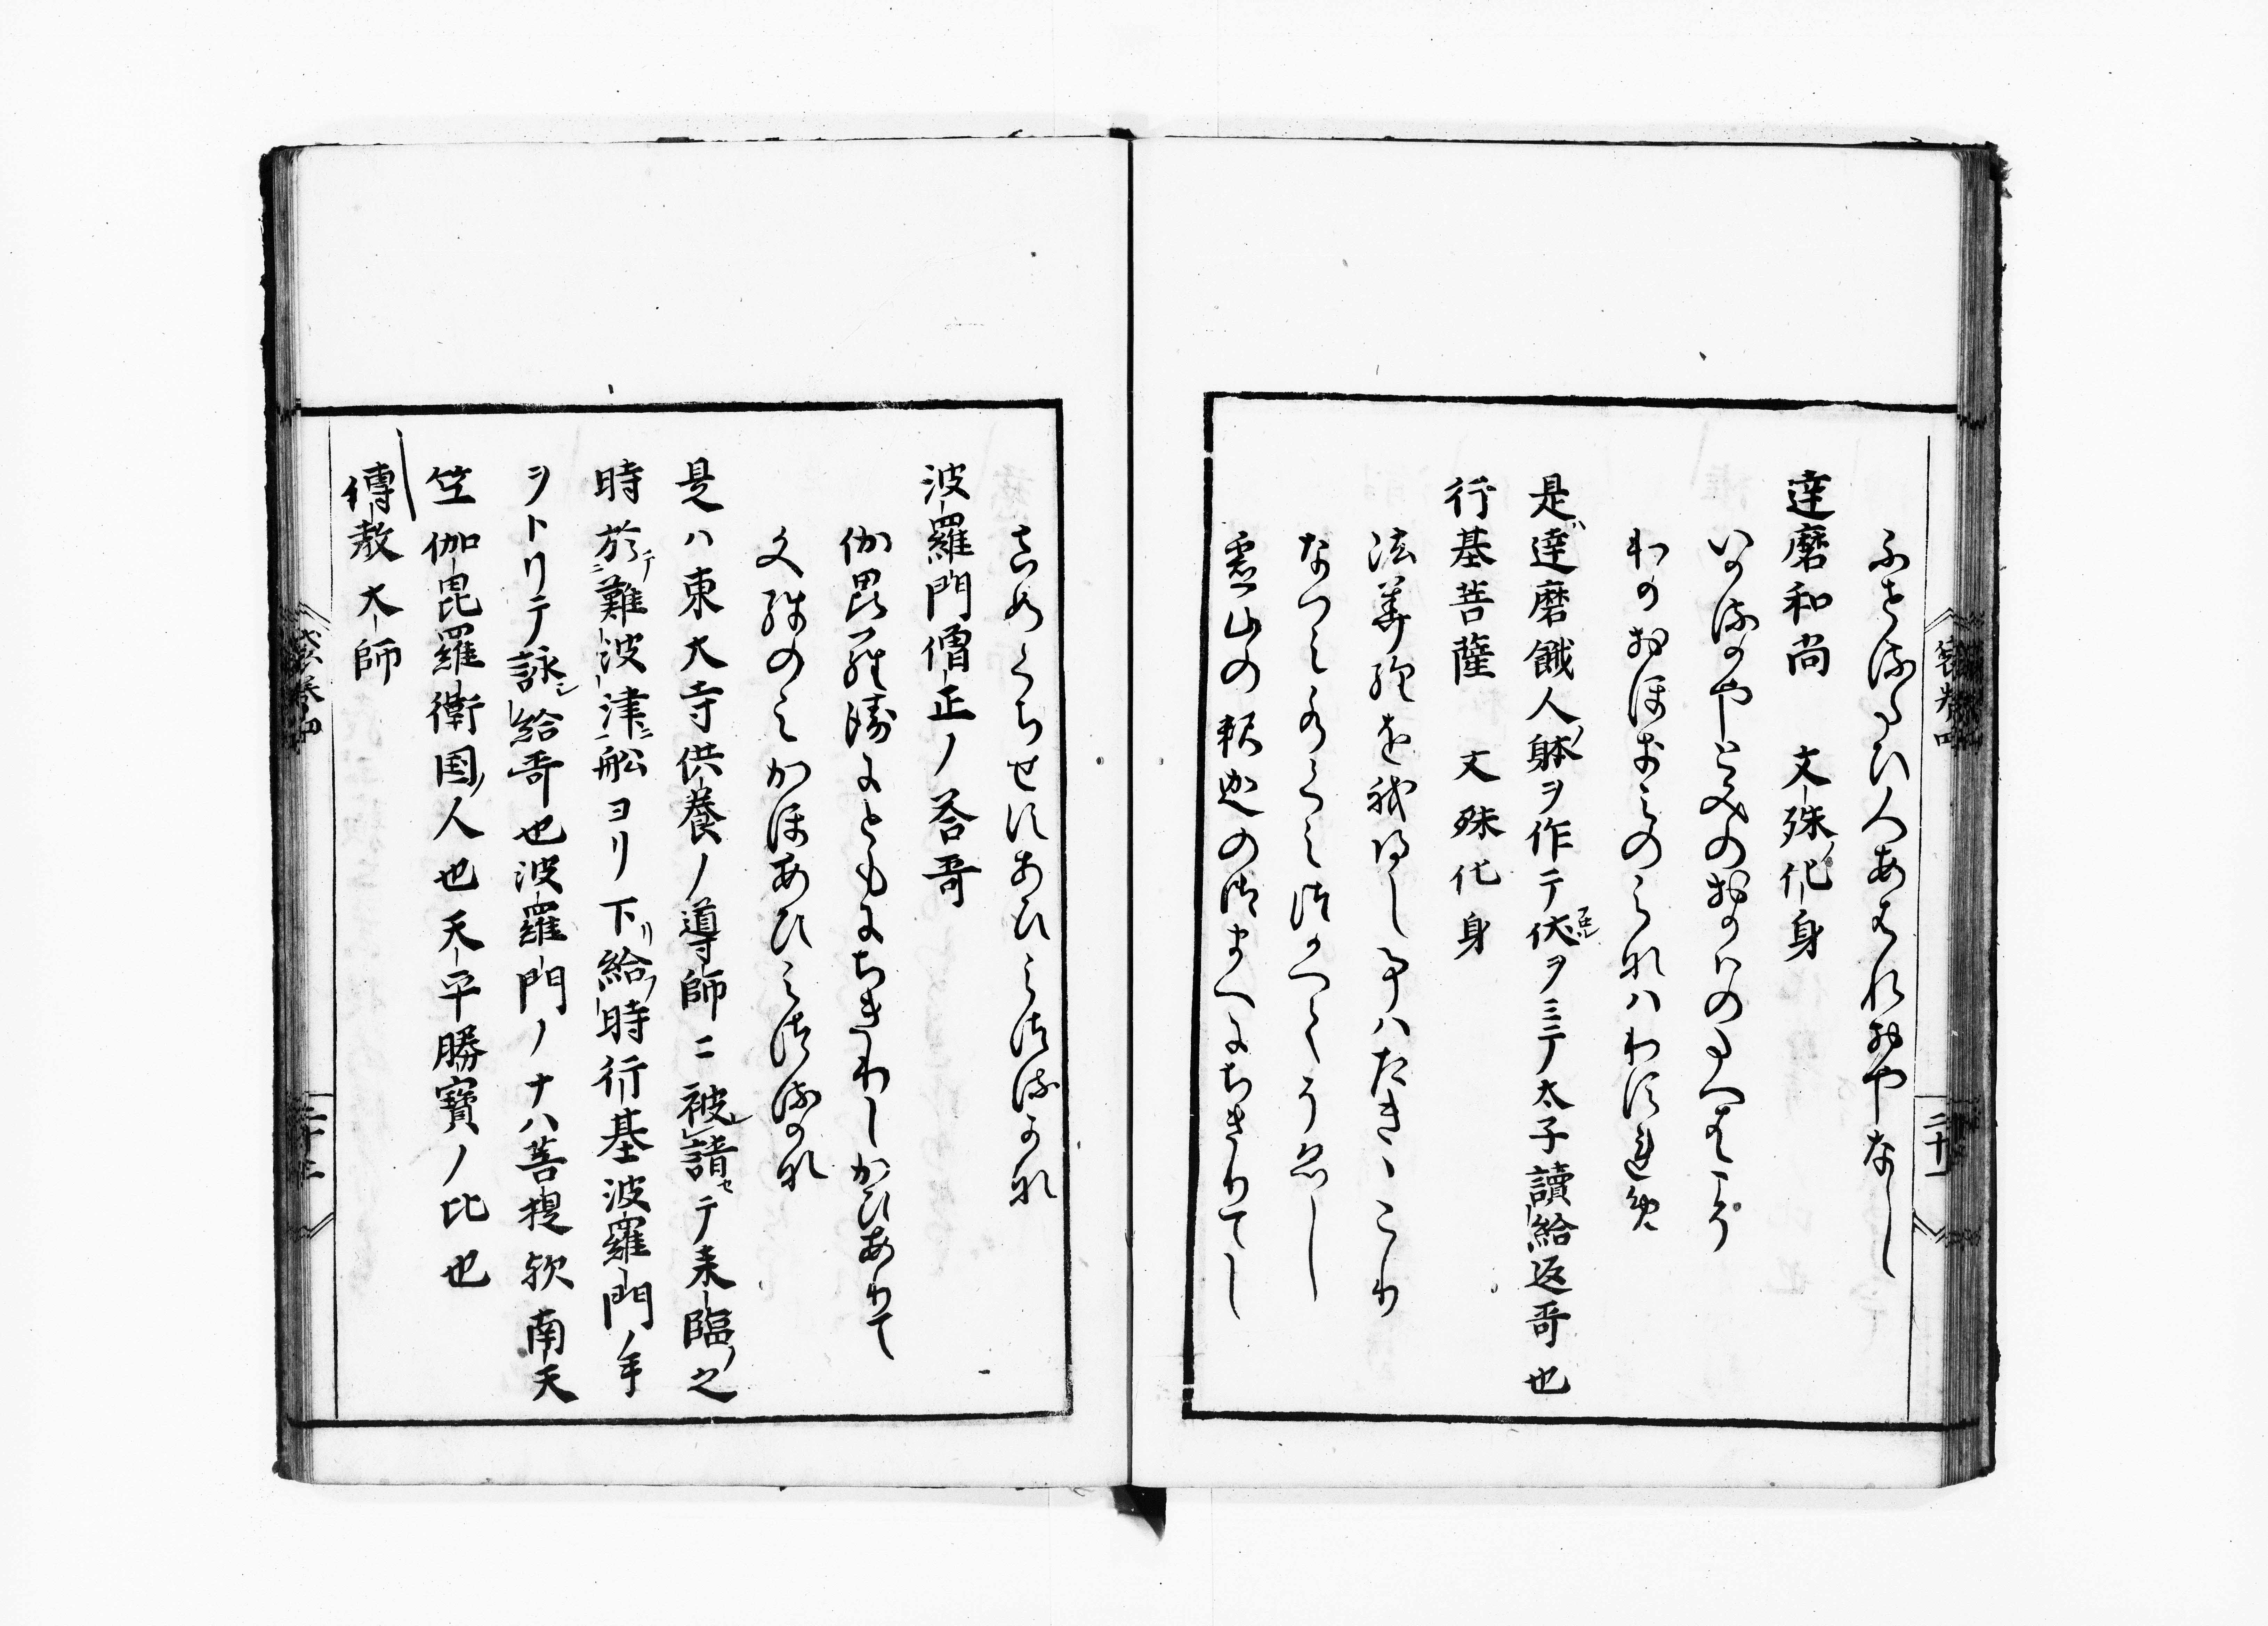 ふせるたひ人あはれおやなし
達磨和尚　文殊ノ化身
いかるかやとみのおかはのたへはこそ
わかおほきみのみなハわすれめ
是ハ達磨餓人ノ躰ヲ作テ伏ヲミテ太子讀給返哥也
行基菩薩　文殊化身
法華經を我えし事ハたきゝこり
なつみ水くみつかへてそえし
霊山の釈迦のみまへにちきりてし
真如くちせすあひみつるかな
波羅門僧正ノ荅哥
伽毘羅衛にともにちきりしかひありて
文殊のみかほあひみつるかな
是ハ東大寺供養ノ導師ニ被請セテ来臨ノ之
時於テ難波ノ津ニ舩ヨリ下リ給ノ時行基波羅門ノ手
ヲトリテ詠シ給哥也波羅門ノナハ菩提欤南天
竺伽毘羅衛国ノ人也天平勝寶ノ比也
傳教大師
袋巻四
二十一